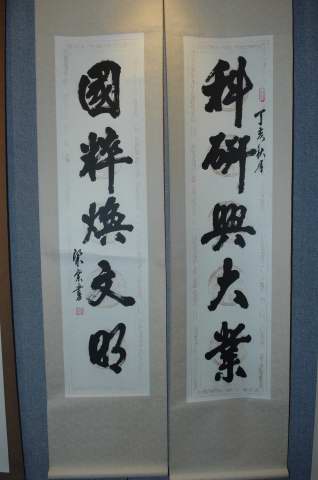 科研興大業
丁亥秋月
國粹煥文明